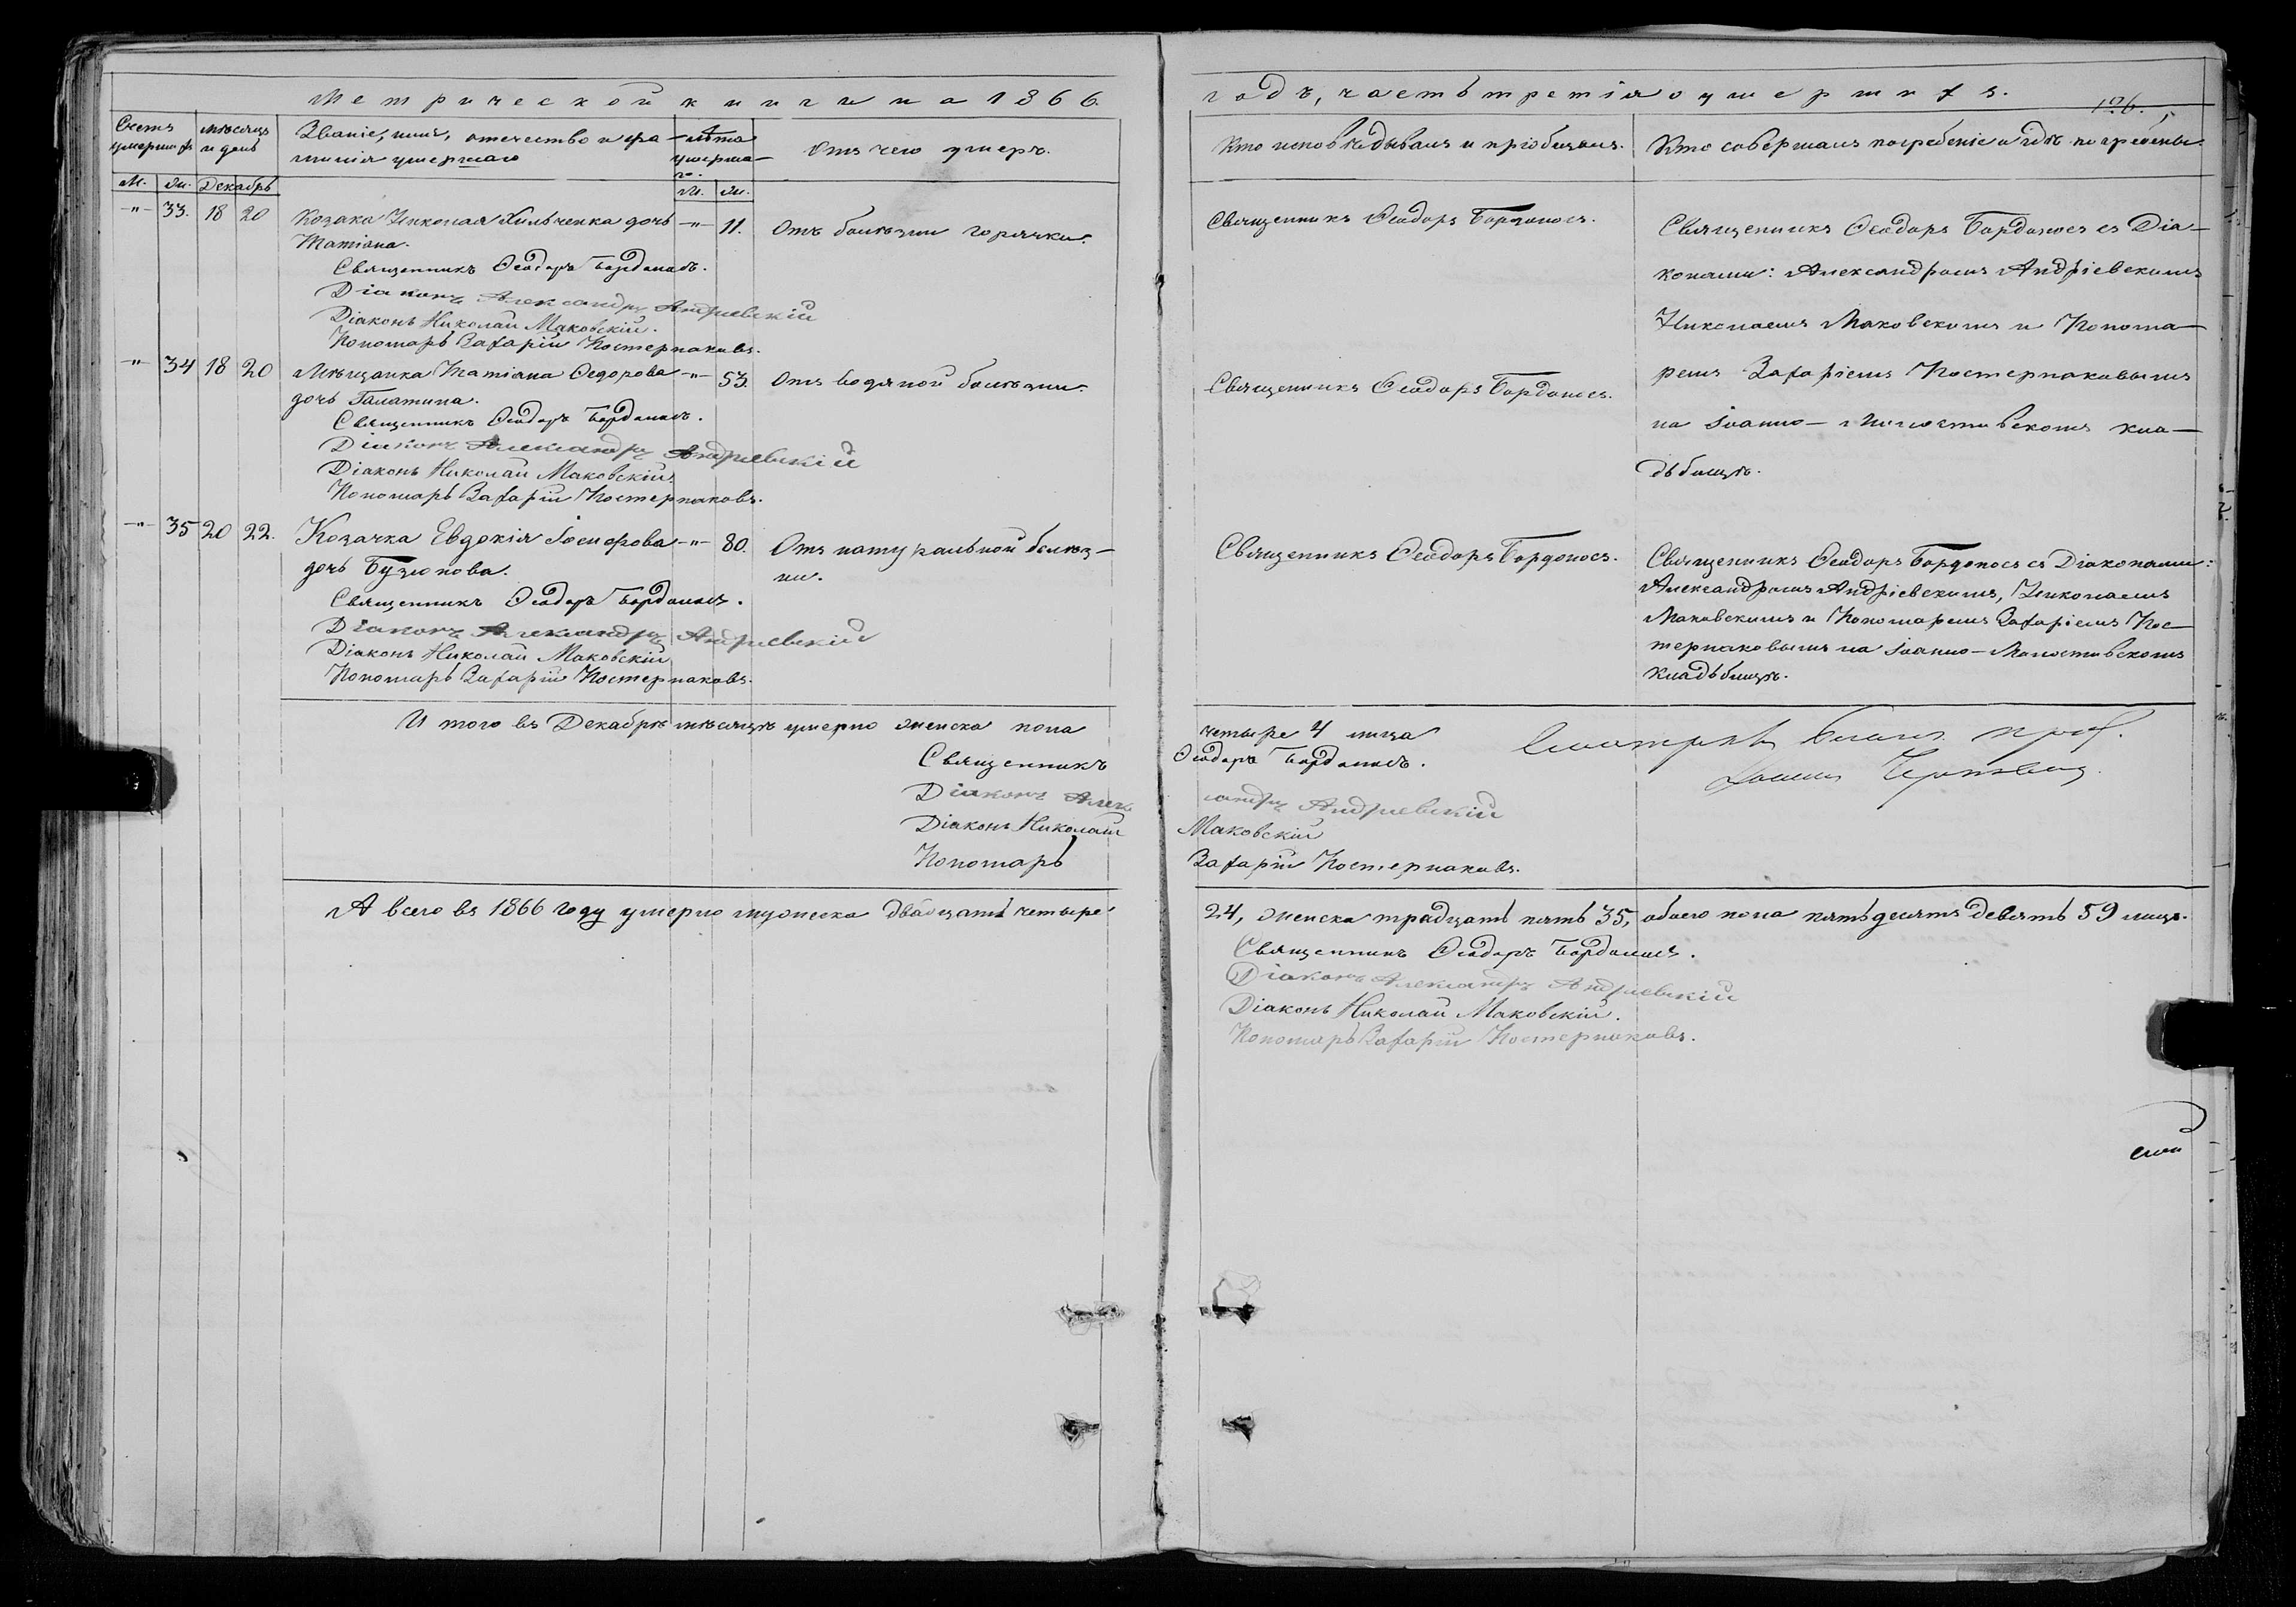 Метрической книги на 1866
годъ, часть третія о умершихъ.
126.
Счетъ умершихъ
мѣсяцъ и день
Званіе, имя, отечество и фа-
милія умершаго
лѣта умерша-
го.
Отъ чего умеръ.
Кто исповѣдывалъ и пріобщалъ.
Кто совершалъ погребеніе и гдѣ погребены.
М. Ж. Декабрь М. Ж.
-"- 33. 18 20 Козака Николая Хильченка дочь -"- 11. Отъ болѣзни горячки.
Татіана.
Священникъ Ѳеодоръ Бордоносъ.
Діаконъ Александръ Андріевскій
Діаконъ Николай Маковскій.
Пономарь Захарій Костернаковъ.
Священникъ Ѳеодоръ Бордоносъ.
Священникъ Ѳеодоръ Бордоносъ съ Діа-
конами: Александромъ Андріевскимъ
Николаемъ Маковскимъ и Понома-
ремъ Захаріемъ Костернаковымъ
на Іоанно- кла-
дьбищѣ.
-"- 34 18 20 Мѣщанка Татіана Ѳедорова -"- 53. Отъ водяной болѣзни.
дочь Галатина.
Священникъ Ѳеодоръ Бордоносъ.
Діаконъ Александръ Андріевскій
Діаконъ Николай Маковскій
Пономарь Захарій Костернаковъ.
Священникъ Ѳеодоръ Бордоносъ.
-"- 35 20 22. Козачка Евдокія Іосифова -"- 80. Отъ натуральной болѣз-
ни.
дочь Бузюнова.
Священникъ Ѳеодоръ Бордоносъ.
Діаконъ Александръ Андріевскій
Діаконъ Николай Маковскій
Пономарь Захарій Костернаковъ.
Священникъ Ѳеодоръ Бордоносъ.
Священникъ Ѳеодоръ Бордоносъ съ Діаконами:
Александромъ Андріевскимъ, Николаемъ
Маковскимъ и Пономаремъ Захаріемъ Кос-
тернаковымъ на Іоанно-
кладьбищѣ.
И того въ Декабрѣ мѣсяцѣ умерло женска пола
четыре 4 лица
Священникъ Ѳеодоръ Бордоносъ.
Діаконъ Александръ Андріевскій
Діаконъ Николай Маковскій
Пономарь Захарій Костернаковъ.
А всего въ 1866 году умерло мужеска двадцать четыре
24, женска традцать пять 35, обоего пола пятьдесятъ девять 59 лицъ.
Священникъ Ѳеодоръ Бордоносъ.
Діаконъ Александръ Андріевскій
Діаконъ Николай Маковскій.
Пономарь Захарій Костернаковъ.